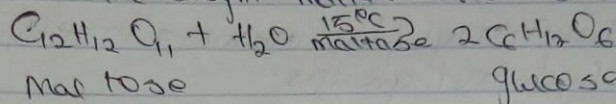 C12H12O11 + H2O 15°C maltase 2C6H12O6
Maltose glucose